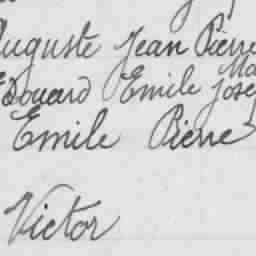 Auguste Jean Pierre
Edouard Emile Jose
Emile Pierre
Victor